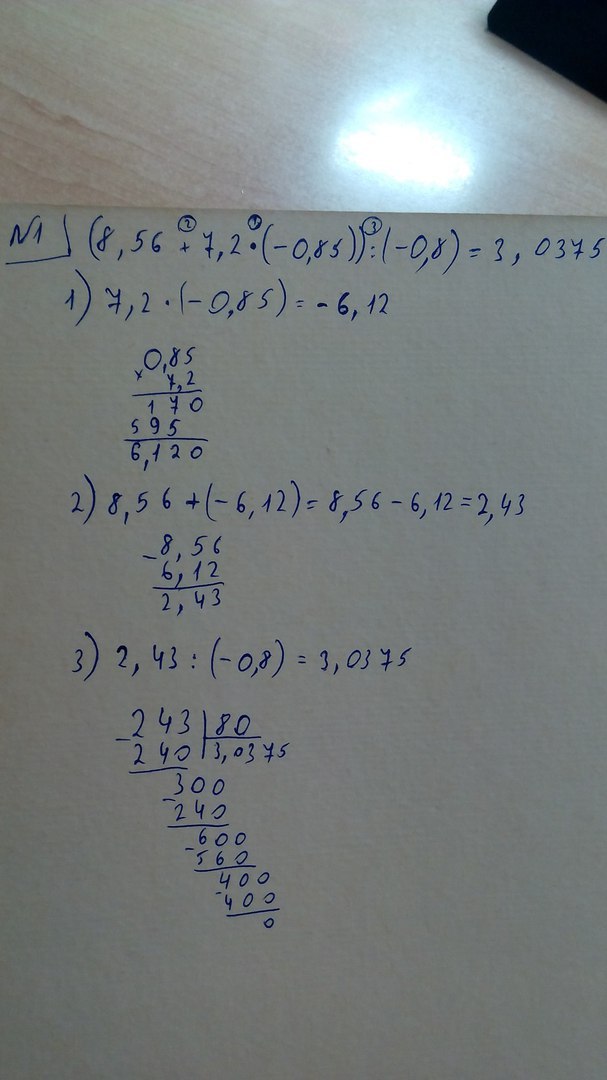 N1 (8,56 + 7,2 · (-0,85)) : (-0,8) = 3,0375
2 1 3
1) 7,2 · (-0,85) = -6,12
0,85
× 7,2
170
595
6,120
2) 8,56 + (-6,12) = 8,56 - 6,12 = 2,43
- 8,56
6,12
2,43
3) 2,43 : (-0,8) = 3,0375
- 243 | 80
240 | 3,0375
- 300
240
- 600
560
- 400
400
0